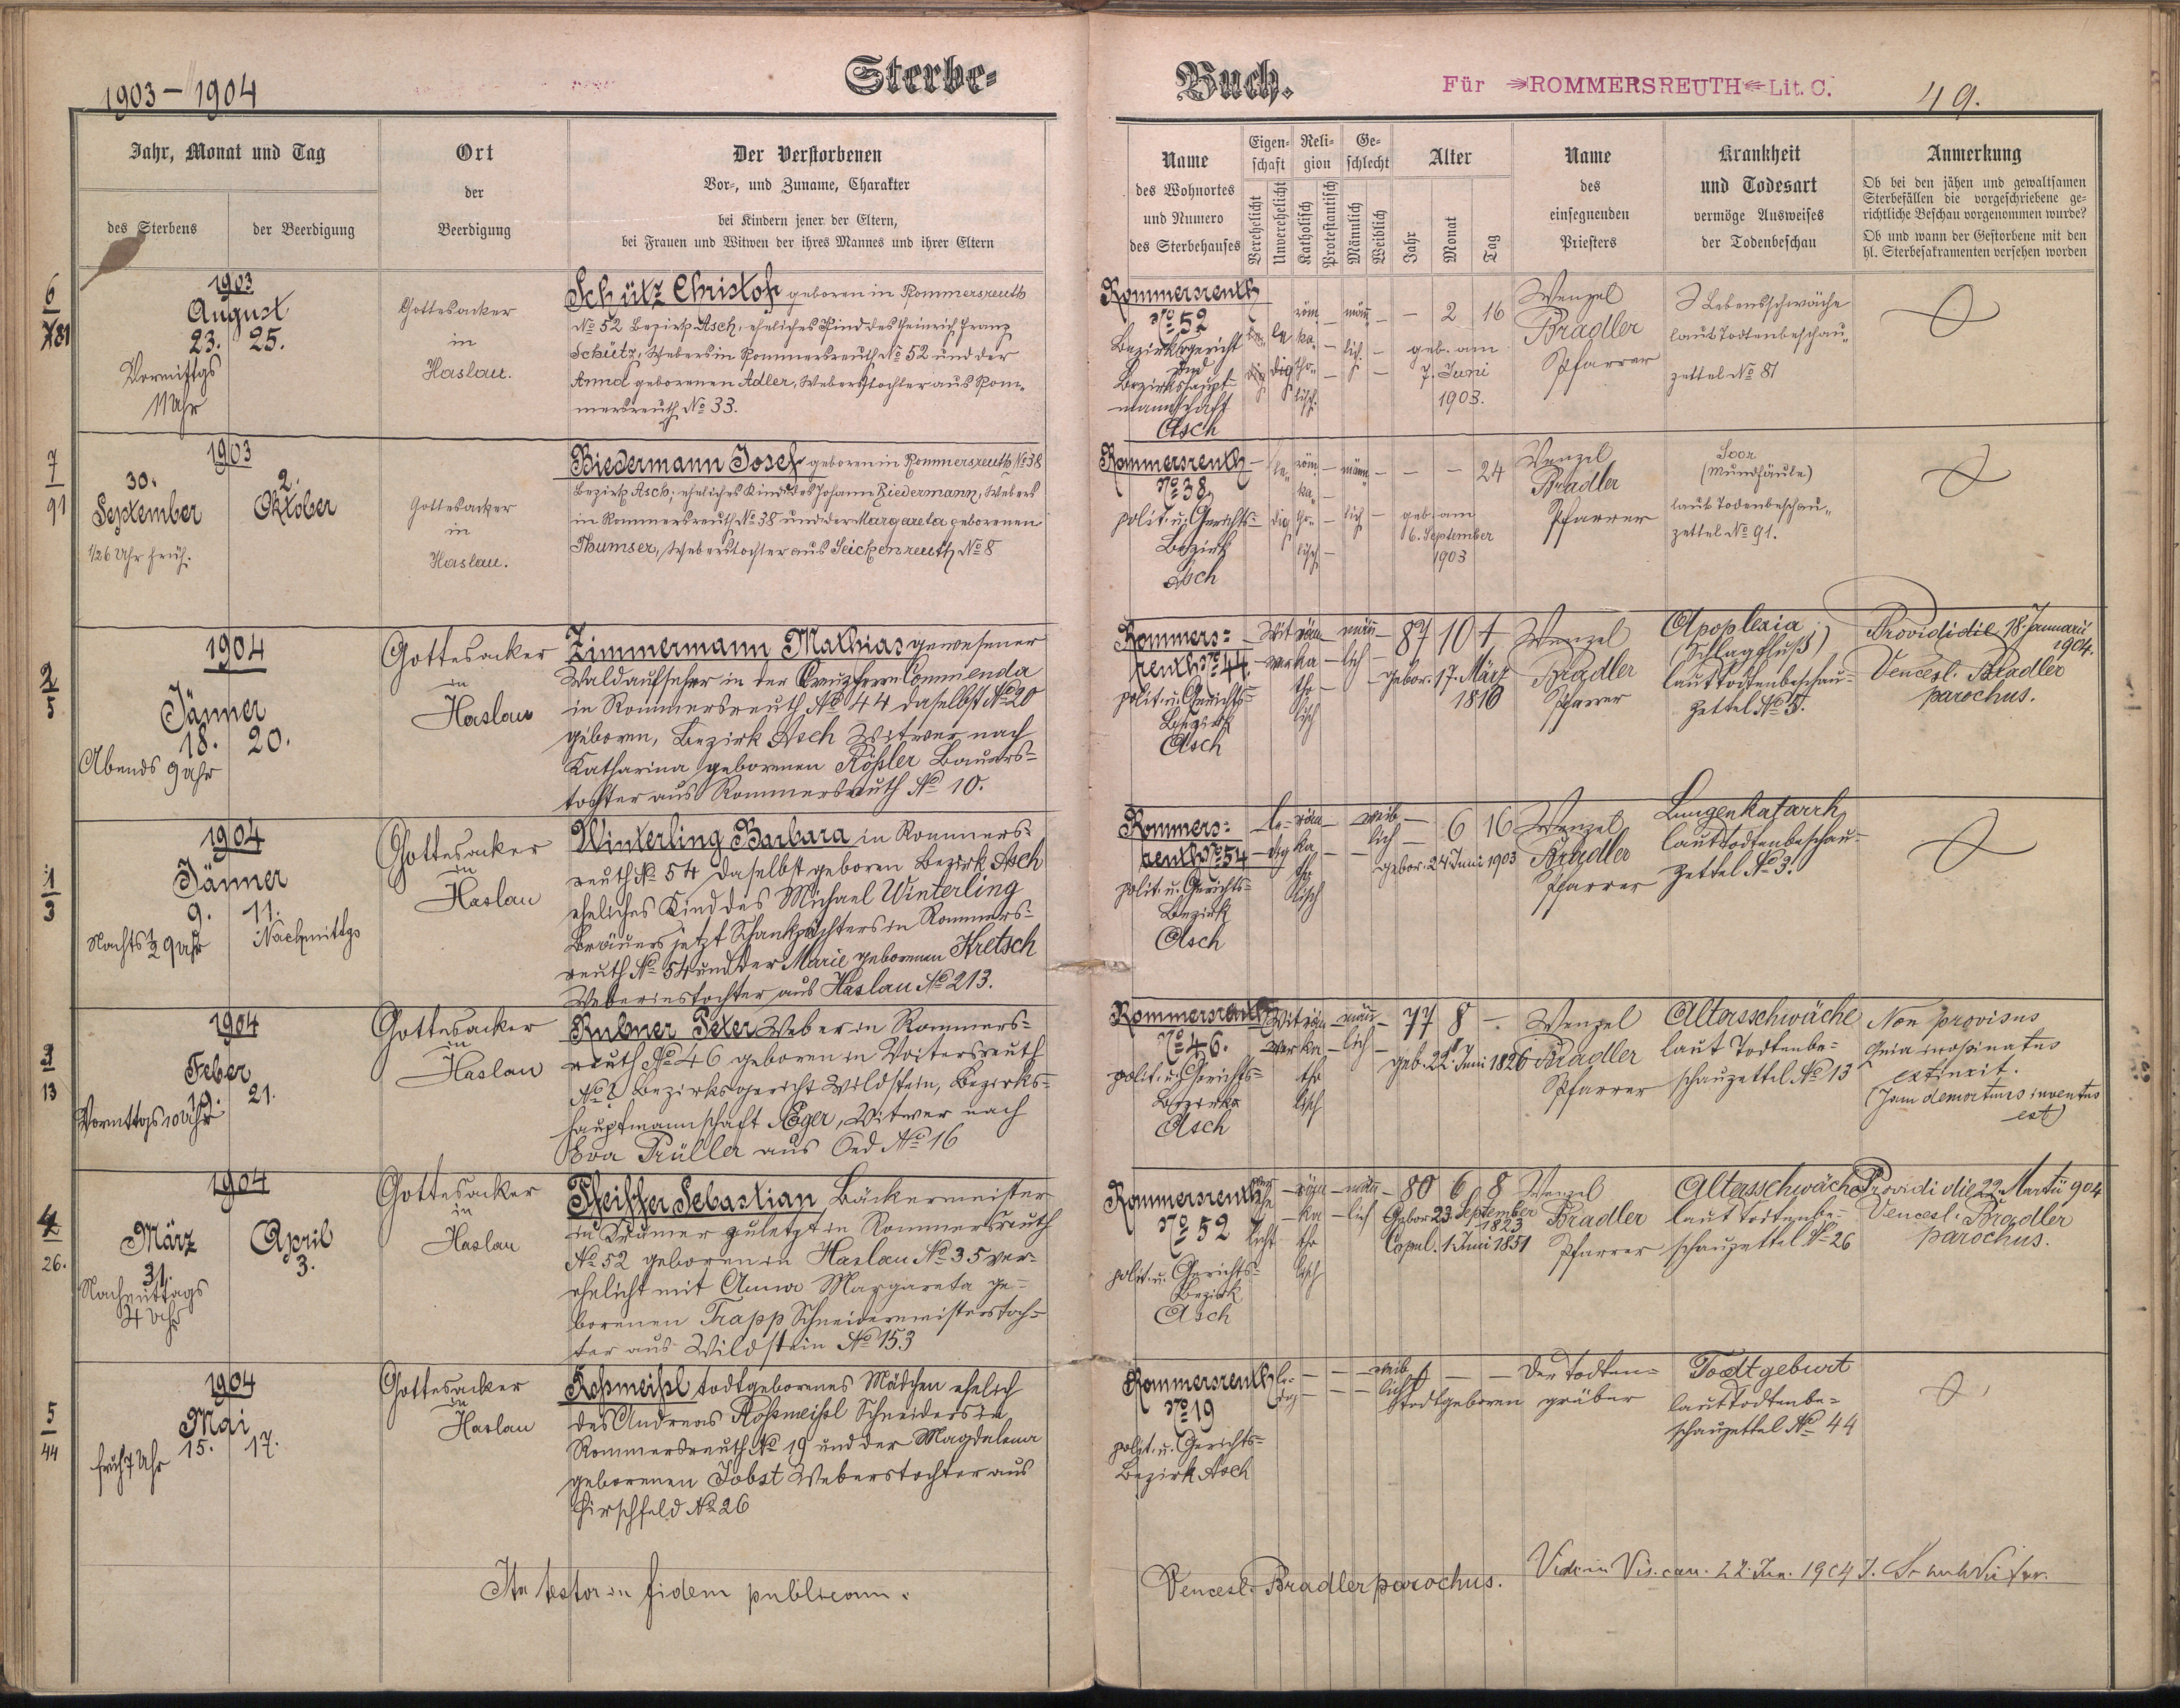 1903–1904
Sterbe-
Buch.
Für ROMMERSREUTH Lit. C.
49.
Jahr, Monat und Tag
des Sterbens
der Beerdigung
Ort
der
Beerdigung
Der Verstorbenen
Vor-, und Zuname, Charakter
bei Kindern jener der Eltern,
bei Frauen und Witwen der ihres Mannes und ihrer Eltern
Name
des Wohnortes
und Numero
des Sterbehauses
Eigen-
schaft
Verehelicht
Unverehelicht
Reli-
gion
Katholisch
Protestantisch
Ge-
schlecht
Männlich
Weiblich
Alter
Jahr
Monat
Tag
Name
des
einsegnenden
Priesters
Krankheit
und Todesart
vermöge Ausweises
der Todenbeschau
Anmerkung
Ob bei den jähen und gewaltsamen
Sterbefällen die vorgeschriebene ge-
richtliche Beschau vorgenommen wurde?
Ob und wann der Gestorbene mit den
hl. Sterbesakramenten versehen worden
6
81
1903
August
23. 25.
Vormittgs
11 Uhr
Gottesacker
in
Haslau.
Schütz Christof geboren in Rommersreuth
No 52 Bezirk Asch, eheliches Kind des Heinrich Franz
Schütz, Webers in Rommersreuth No 52 und der
Anna geborenen Adler, Weberstochter aus Rom-
mersreuth No 33.
Rommersreuth
No 52
Bezirksgericht
und
Bezirkshaupt-
mannschaft
Asch
le
dig
röm
ka-
tho-
lisch.
män-
lich
– 2 16
geb. am
7. Juni
1903.
Wenzel
Bradler
Pfarrer
Lebensschwäche
laut Todtenbeschau-
zettel No 81
7
91
1903
30. 2.
September Oktober
1/2 6 Uhr früh.
Gottesacker
in
Haslau.
Biedermann Josef geboren in Rommersreuth No 38
Bezirk Asch; eheliches Kind des Johann Biedermann, Webers
in Rommersreuth No 38 und der Margareta geborenen
Thumser, Weberstochter aus Seichenreuth No 8
Rommersreuth
No 38
polit. u. Gerichts-
Bezirk
Asch
le-
dig
röm-
ka-
tho-
lisch
männ-
lich
– – 24
geb. am
6. September
1903
Wenzel
Bradler
Pfarrer
Soor
(Mundfäule)
laut Todenbeschau-
zettel No 91.
2
5
1904
Jänner
18. 20.
Abends 9 Uhr
Gottesacker
in
Haslau
Zimmermann Mathias gewesener
Waldaufseher in der Kreuzherrn Commenda
in Rommersreuth No 44 daselbst No 20
geboren, Bezirk Asch Witwer nach
Katharina geborenen Rößler Bauers-
tochter aus Rommersreuth No 10.
Rommers-
reuth No 44.
polit. u. Gerichts-
Bezirk
Asch
Wit
wer
röm
ka-
tho-
lisch
män-
lich
87 10 1
Gebor. 17. März
1816
Wenzel
Bradler
Pfarrer
Apoplexia
(Schlagfluß)
laut Todtenbeschau-
zettel No 5.
Providi die 18. Januarii
1904.
Vencesl. Bradler
parochus.
1
3
1904
Jänner
9. 11.
Nachts 1/2 9 Uhr Nachmittgs
Gottesacker
in
Haslau
Winterling Barbara in Rommers-
reuth No 54 daselbst geboren Bezirk Asch
eheliches Kind des Michael Winterling
Bräuers jetzt Schankpächters in Rommers-
reuth No 54 und der Marie geborenen Kretsch
Weberinstochter aus Haslau No 213.
Rommers-
reuth No 54
polit. u. Gerichts-
Bezirk
Asch
le-
dig
röm-
ka-
tho
lisch
weib-
lich
– 6 16
gebor. 24 Juni 1903
Wenzel
Bradler
Pfarrer
Lungenkatarrh
laut Todtenbeschau-
zettel No 3.
3
13
1904
Feber
19. 21.
Vormttgs 10 Uhr
Gottesacker
in
Haslau
Rubner Peter Weber in Rommers-
reuth No 46 geboren in Voitersreuth
No 2 Bezirksgericht Wildstein, Bezirks-
hauptmannschaft Eger, Witwer nach
Eva Prüller aus Oed No 16
Rommersreuth
No 46.
polit. u. Gerichts-
Bezirk
Asch
Wit
wer
röm
ka-
tho
lisch
män-
lich
77 8 –
geb. 22. Juni 1826
Wenzel
Bradler
Pfarrer
Altersschwäche
laut Todtenbe-
schauzettel No 13
Non provisus
Quia inopinatus
extinxit.
(Jam demortuus inventus
est)
4
26.
1904
März April
31. 3.
Nachmittags
4 Uhr
Gottesacker
in
Haslau
Pfeiffer Sebastian Bäckermeister
u. Krämer zuletzt in Rommersreuth
No 52 geboren in Haslau No 35 ver-
ehelicht mit Anna Margareta ge-
borenen Trapp Schneidermeisterstoch-
ter aus Wildstein No 153
Rommersreuth
No 52
polit. u. Gerichts-
Bezirk
Asch
ver
ehe
licht
röm
ka-
tho
lisch
män-
lich
80 6 8
Gebor 23 September
1823
Copul. 1. Juni 1851
Wenzel
Bradler
Pfarrer
Altersschwäche
laut Todtenbe-
schauzettel No 26
Providi die 22. Martii 904
Vencesl. Bradler
parochus.
5
44
1904
Mai
15. 17.
früh 7 Uhr
Gottesacker
in
Haslau
Roßmeißl todtgeborenes Mädchen ehelich
des Andreas Roßmeißl Schneiders in
Rommersreuth No 19 und der Magdalena
geborenen Jobst Weberstochter aus
Hirschfeld No 26
Rommersreuth
No 19
polit. u. Gerichts-
Bezirk Asch
le-
dig
weib
lich
Todtgeboren
Der Todten-
gräber
Todtgeburt
laut Todtenbe-
schauzettel No 44
Ita testor in fidem publicam.
Vencesl. Bradler parochus.
Vidi in Vis. can. 22. Jun. 1904